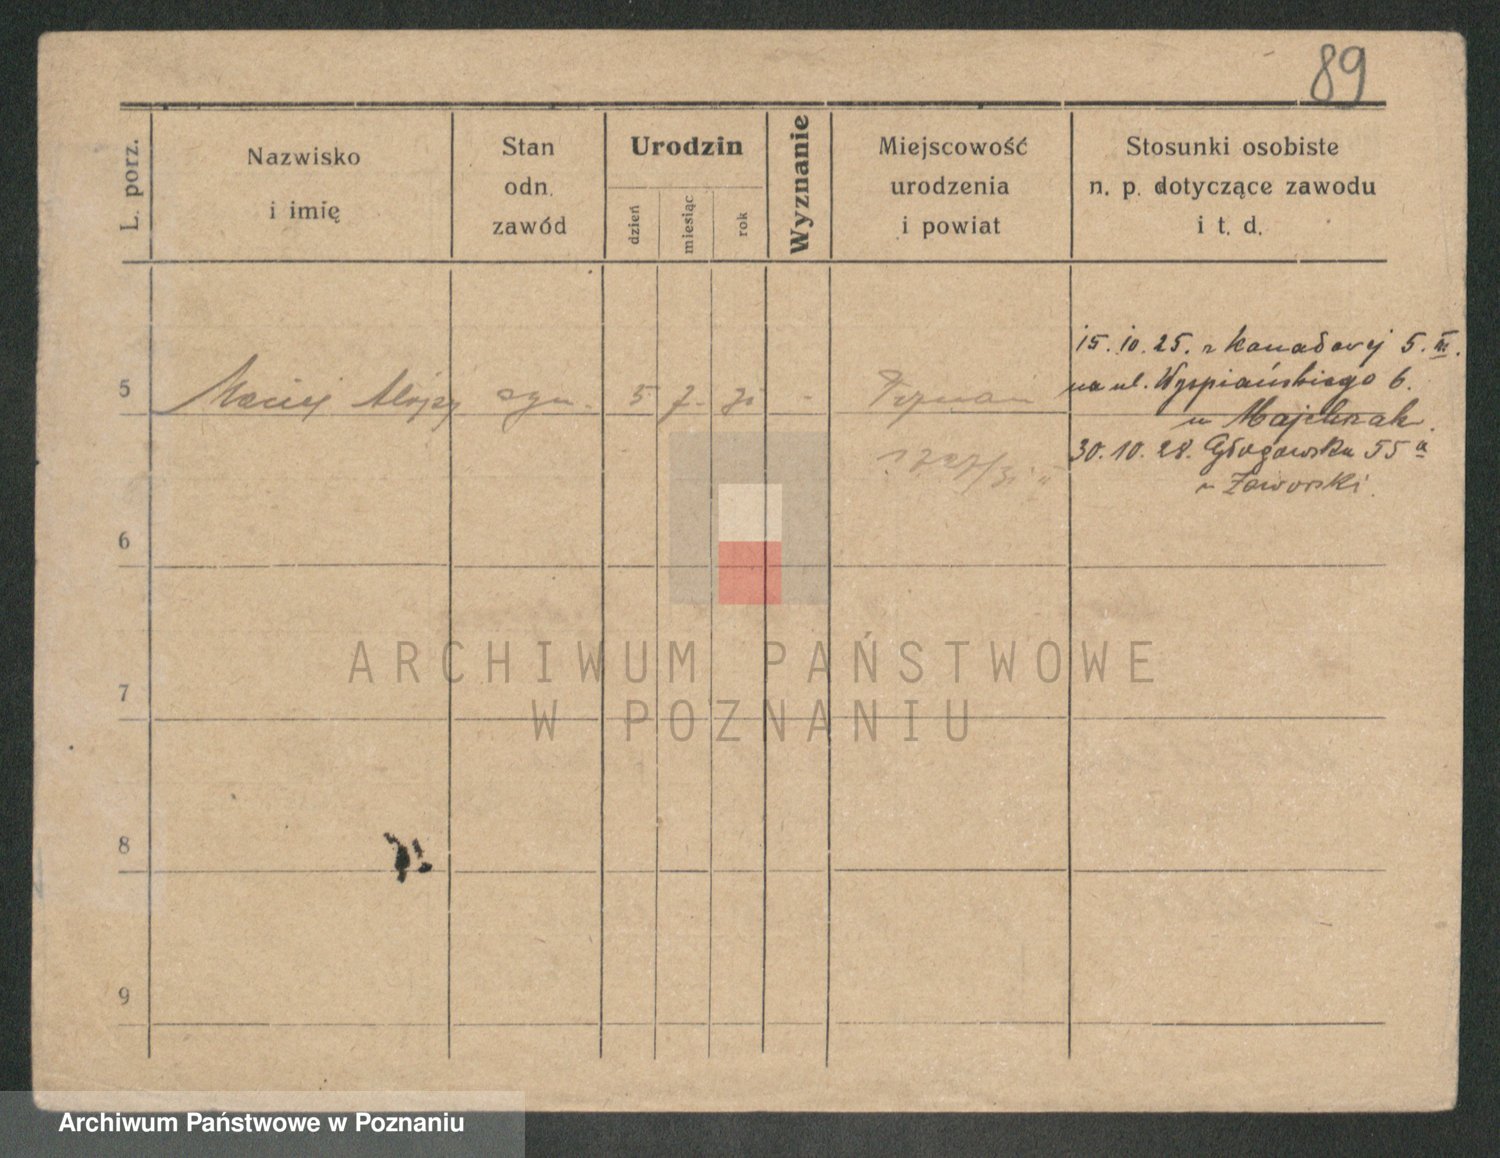 89
L. porz.
Nazwisko
i imię
Stan
odn.
zawód
Urodzin
dzień
miesiąc
rok
Wyznanie
Miejscowość
urodzenia
i powiat
Stosunki osobiste
n. p. dotyczące zawodu
i t. d.
5
Maciej Alojzy syn. 5 7. 31 -
15. 10. 25. z Kanałowej 5. III.
na ul. Wyspiańskiego 6.
u Majchrzak.
30. 10. 28. Głogowska 55 a
u Zaworski.
1727/31
6
7
8
9
ARCHIWUM PAŃSTWOWE
W POZNANIU
Archiwum Państwowe w Poznaniu